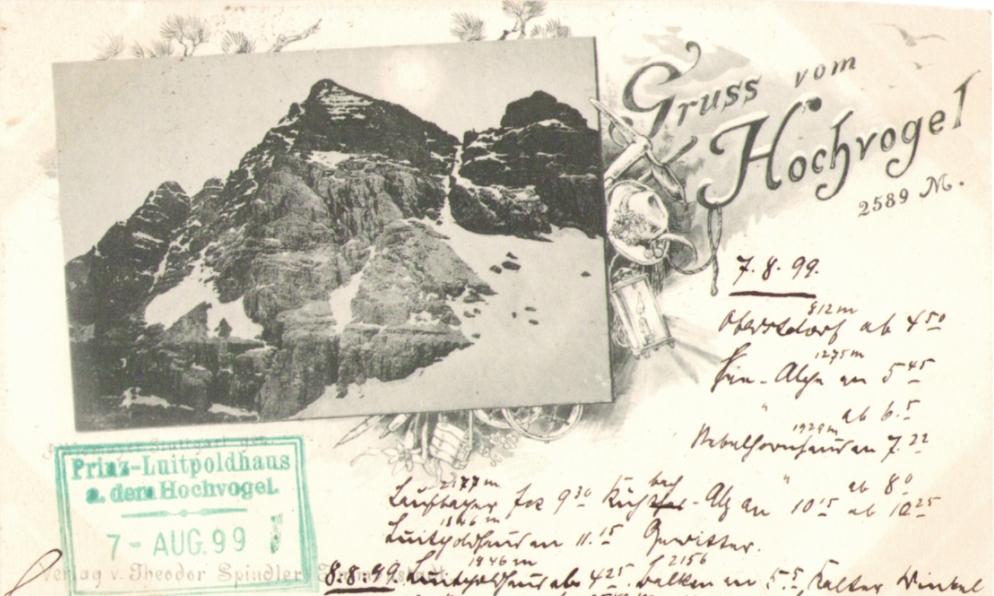 Gruss vom
Hochvogel
2589 M.
7.8.99.
812m
Oberstdorf ab 4 50
1275m
Alpe an 5 45
" ab 6.5
1929m
Nebelhornhaus an 7.22
" ab 8 0
2277m
9 30 an 10 15 ab 10 25
1846m
Luitpoldhaus an 11.15 Gewitter.
Prinz-Luitpoldhaus
a. dem Hochvogel.
7-AUG.99
Verlag v. Theodor Spindler
1846m 2156
8.8.99. Luitpoldhaus ab 4 25. Balken an 5 5, Kalter Winkel